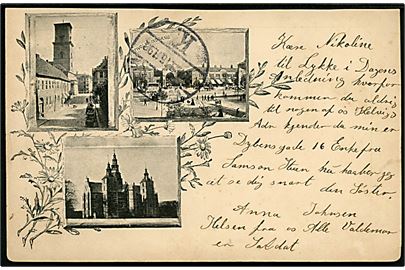 Kære Nikoline
til lykke i Dagens
Anledning hvorfor
kommer du aldrig
til nogen af os Helvig's
Adr kjender du min er
Dybensgade 16 Enkefru
Samson Huen har jeg
at se dig snart din Søster
Anna Johnsen
Hilsen fra os Alle Valdemar
er Soldat
K